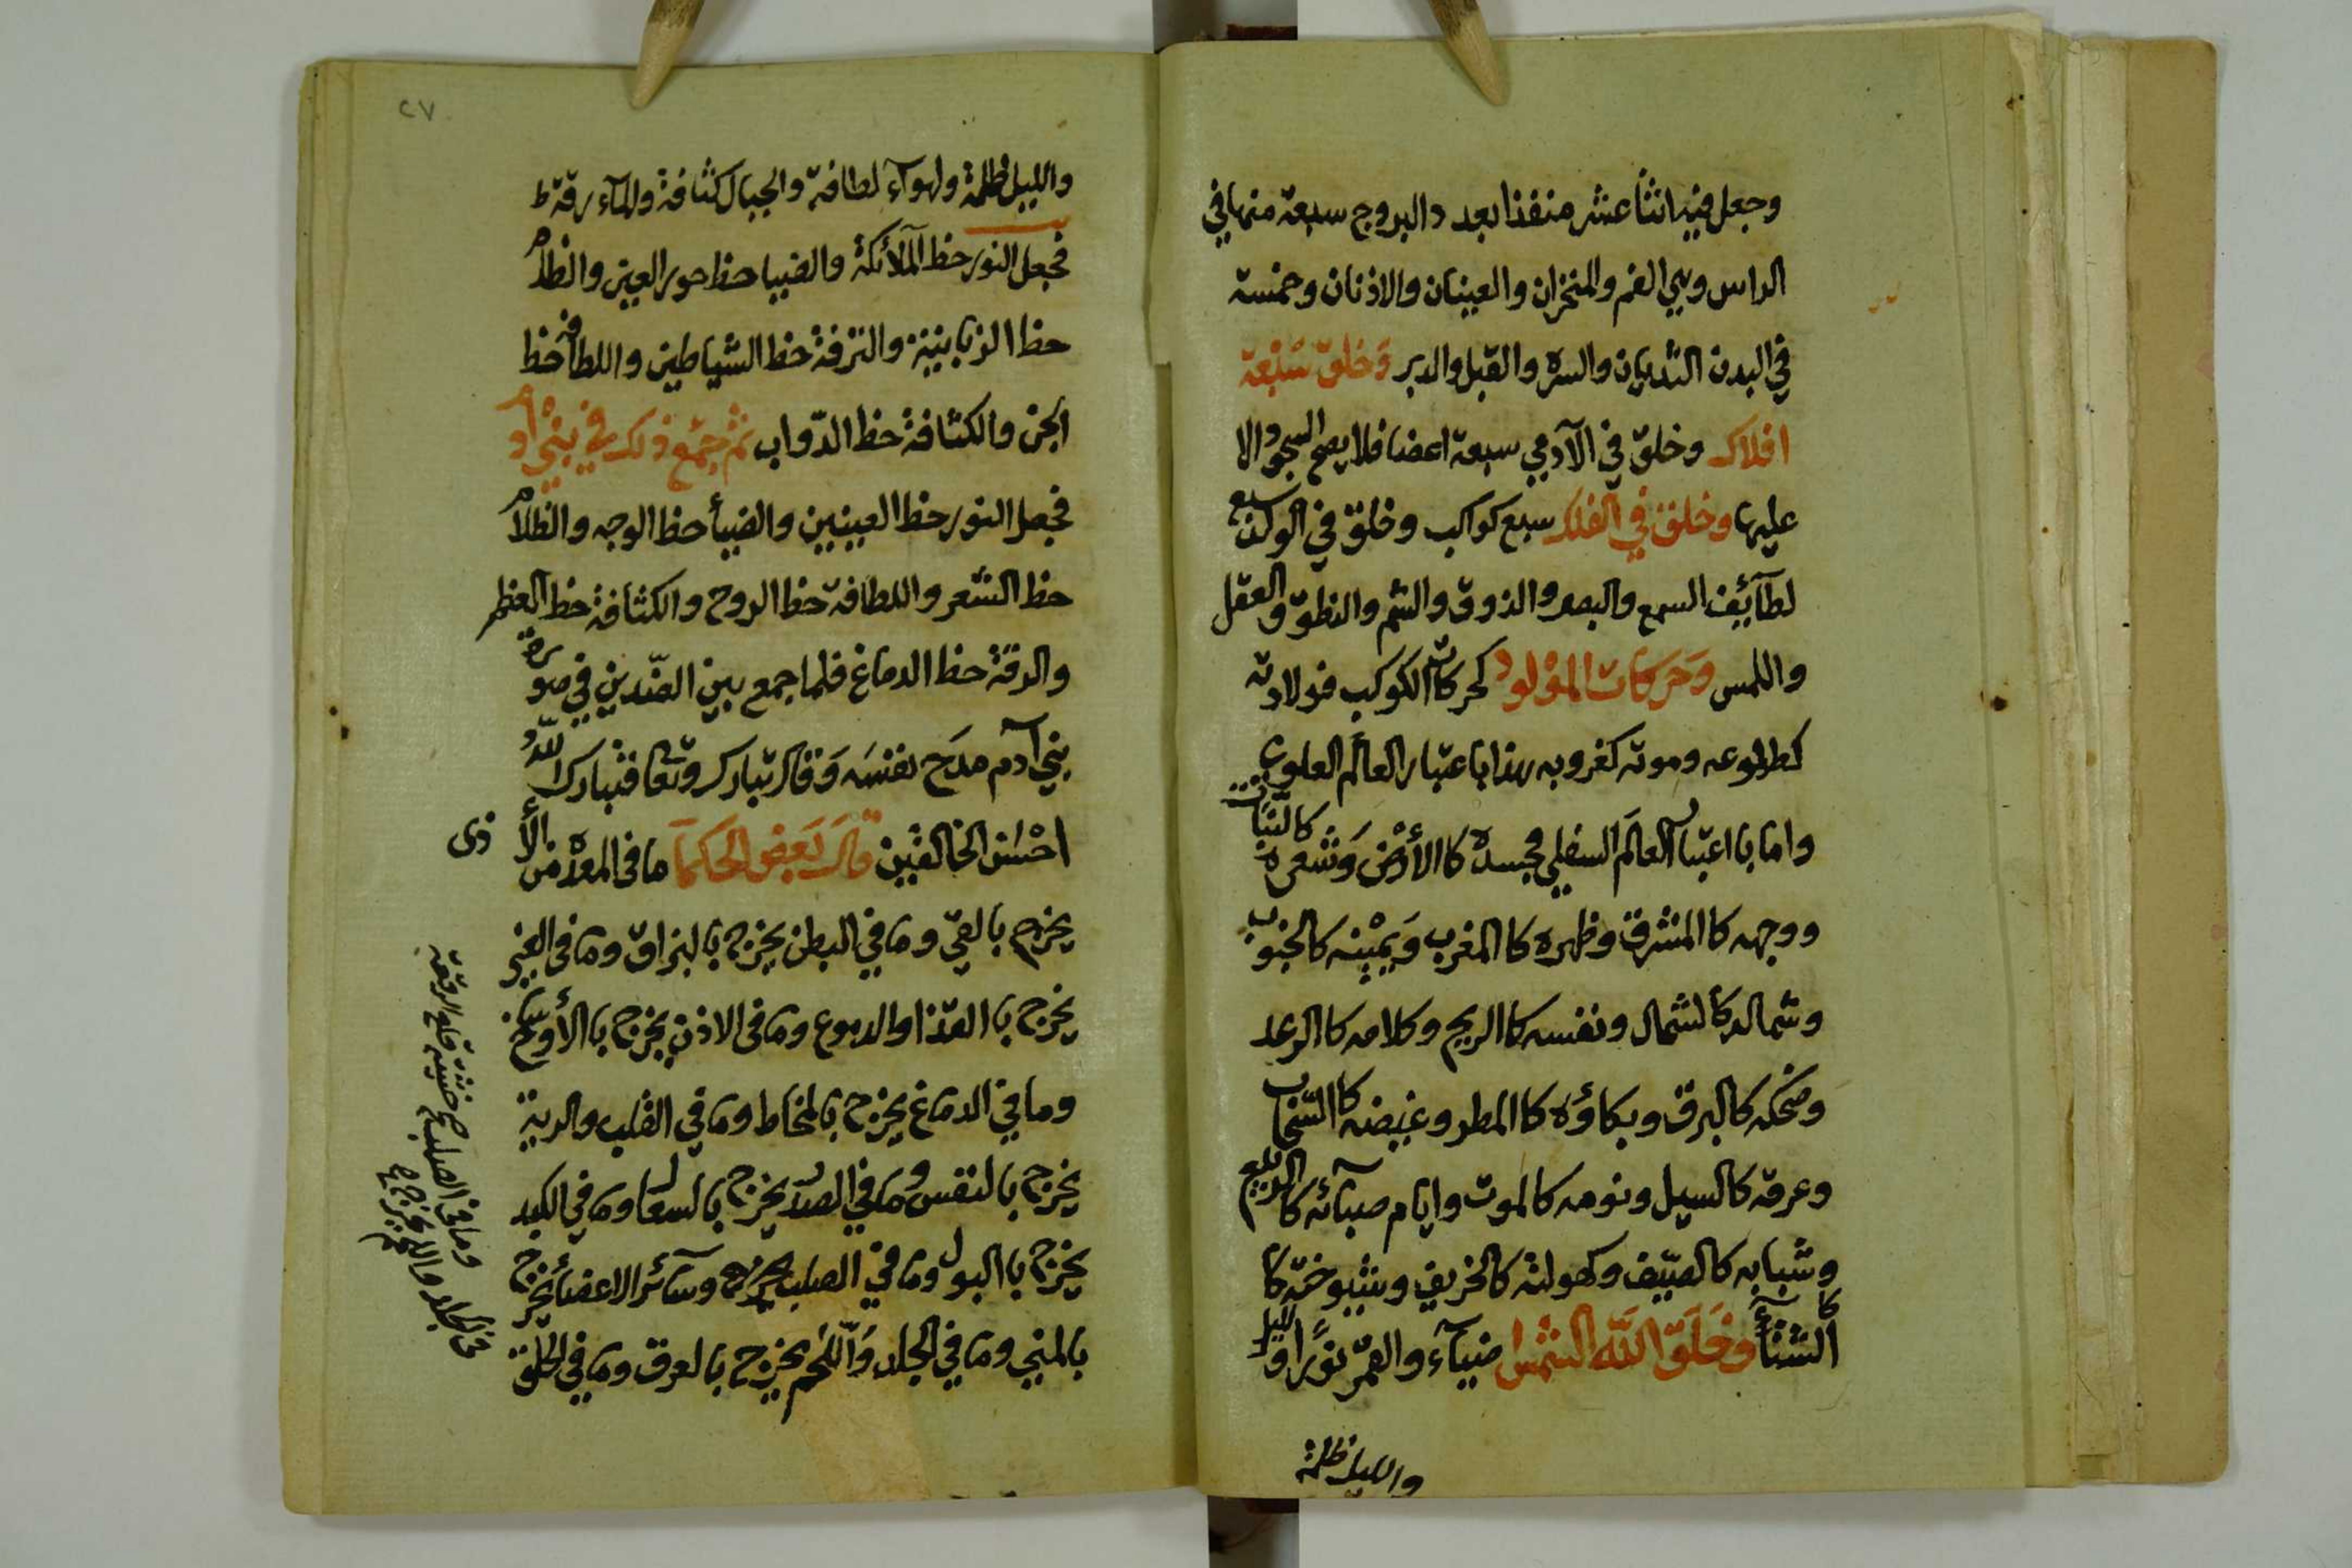 وجعل فيه اثنا عشر منفذا بعدد البروج سبعة منها في
الراس وهي الفم والمنخران والعينان والاذنان وخمسة
في البدن الثديان والسرة والقبل والدبر وَخلق سَبْعة
افلاك وخلق في الآدمي سبعة اعضا فلا يصح السجود الا
عليها وخلق في الفلك سبع كواكب وخلق في سبع
لطآئف السمع والبصر والذوق والشم والنطق والعقل
واللمس وَحركات المَوْلود كحركات الكوكب فولادته
كطلوعه وموته كغروبه هذا باعتبار العالم العلوي
واما بااعتبار العالَم السفلي فجسده كاالأَرْض وَشعره كالنبات
ووجهه كاالمشرق وظهره كاالمغرب وَيمْينه كالجنوب
وشماله كالشمال ونفسه كاالريح وكلامه كاالرعد
وضحكه كالبرق وبكاؤه كاالمطر وغيضه كاالسَّحاب
وعرقه كالسيل ونومه كالموت وايام صبآئه كاالربيع
وشبابه كالصيف وكهولته كالخريف وشيوخته كا
كاالشتأ وخَلَقَ اللَّه الشمس ضيآء والقمر نورًا والليل
والليل ظلمة
٢٧
والليل ظلمة ولهوآء لطافة والجبال كثافة والمآء رقة ط
فجعل النور حظ الملآئكة والضيا حظ حور العين والظلام
حظ الزبانية والترفة حظ الشياطين واللطافة حظ
الجن والكثافة حظ الدّواب ثم جمع ذلك في بنْي أدم
فجعل النور حظ العينين والضيأ حظ الوجه والظلام
حظ الشعر واللطافة حظ الروح والكثافة حظ العظم
والدقة حظ الدماغ فلما جمع بين الضّدين في صورة
بني آدم مدَح نفسَه وَقال تبارك وتعا فتبارك اللّهُ
احْسَن الخالقين قالَ بَعض الحكمآ ما في المعدة من الأذى
يخرج بالقيّ وما في البطن يخرج بالبزاق وما في العين
يخرج باالقذا والدموع وما في الاذن يخرج باالأوساخ
وما في الدماغ يخرج بالمخاط وما في القلب والرية
يخرج بالنفس وما في الصدر يخرج بالسعال وما في الكبد
يخرج باالبول وما في الصلب وسآئر الاعضأ يخرج
بالمني وما في الجلد وَاللَّحْم يخرج بالعرق وما في الحلق
وما في الصلب